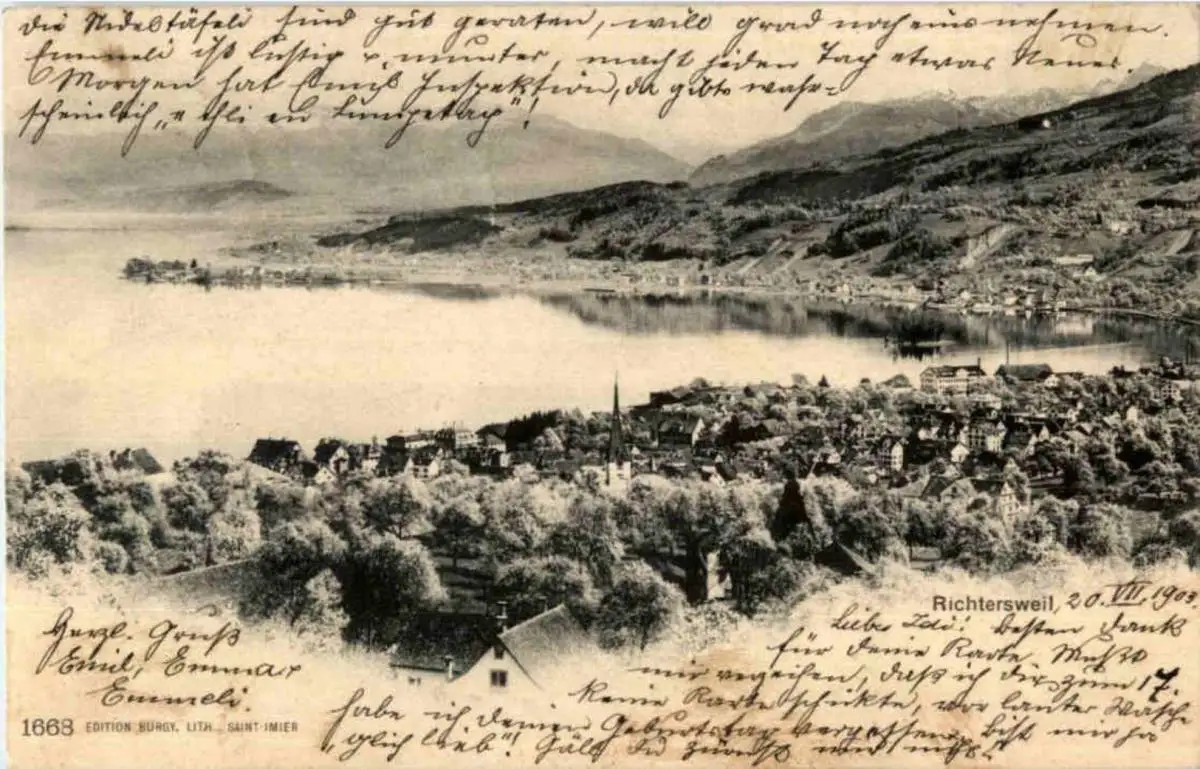 die Nideltäfeli sind gut geraten, will grad noch eins nehmen.
Emmeli ist lustig u. munter, macht jeden Tag etwas Neues.
Morgen hat Emil Inspektion, da gibts wahr=
scheinlich „e chli en Lumpetag"!
Richtersweil, 20. VII. 1903
Liebe Idi! Besten Dank
für Deine Karte. Mußt
mir verzeihen, daß ich dir zum 17.
keine Karte schickte, vor lauter Wäsche
habe ich Deinen Geburtstag vergessen. Bist mir ja
„glich lieb"! Gäll Du zürnst mir nicht!
Herzl. Gruß
Emil, Emma &
Emmeli.
1668 EDITION BURGY, LITH. SAINT-IMIER